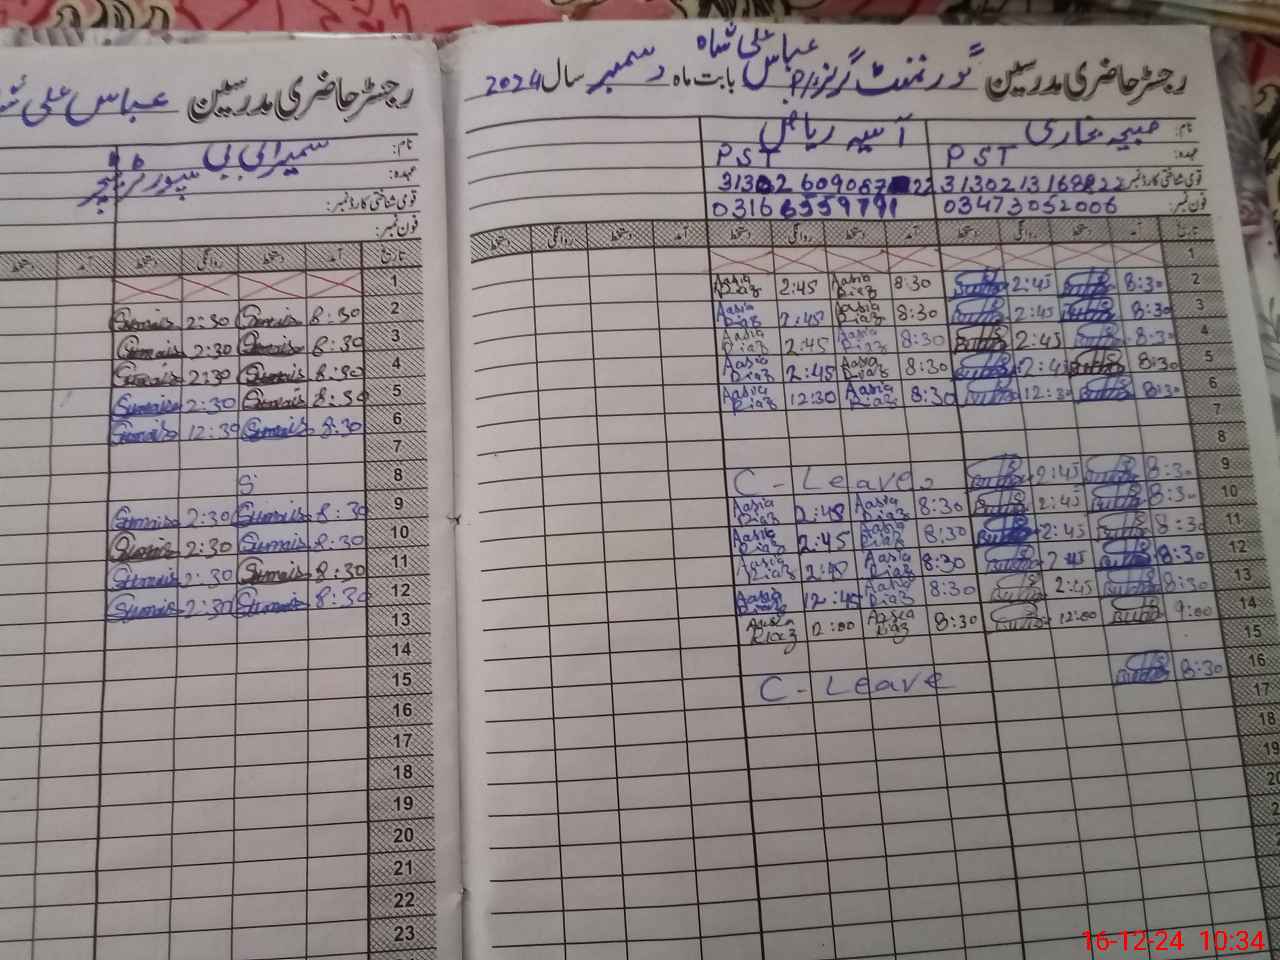 رجسٹر حاضری مدرسین گورنمنٹ گرلز P/S عباس علی شاہ بابت ماہ دسمبر سال 2024
نام: صبیحہ بخاری آسیہ ریاض
عہدہ: PST PST
قومی شناختی کارڈ نمبر:
فون نمبر: 03473052006
تاریخ آمد دستخط روانگی دستخط آمد دستخط روانگی دستخط آمد دستخط روانگی دستخط
1
2 8:30 2:45 8:30 Aasia Riaz 2:45 Aasia Riaz
3 8:30 2:45 8:30 Aasia Riaz 2:45 Aasia Riaz
4 8:30 2:45 8:30 Aasia Riaz 2:45 Aasia Riaz
5 8:30 2:45 8:30 Aasia Riaz 2:45 Aasia Riaz
6 8:30 12:30 8:30 Aasia Riaz 12:30 Aasia Riaz
7
8
9 8:30 2:45 C-Leave
10 8:30 2:45 8:30 Aasia Riaz 2:45 Aasia Riaz
11 8:30 2:45 8:30 Aasia Riaz 2:45 Aasia Riaz
12 8:30 2:45 8:30 Aasia Riaz Aasia Riaz
13 8:30 2:45 8:30 Aasia Riaz 12:45 Aasia Riaz
14 9:00 12:00 8:30 Aasia Riaz 12:00 Aasia Riaz
15
16 8:30 C-Leave
17
18
19
20
رجسٹر حاضری مدرسین عباس علی شاہ
نام: سمیرا بی بی
عہدہ:
قومی شناختی کارڈ نمبر:
فون نمبر:
تاریخ آمد دستخط روانگی دستخط آمد دستخط
1
2 8:30 Sumaira 2:30 Sumaira
3 8:30 Sumaira 2:30 Sumaira
4 8:30 Sumaira 2:30 Sumaira
5 8:30 Sumaira 2:30 Sumaira
6 8:30 Sumaira 12:30 Sumaira
7
8 S
9 8:30 Sumaira 2:30 Sumaira
10 8:30 Sumaira 2:30 Sumaira
11 8:30 Sumaira 2:30 Sumaira
12 8:30 Sumaira 2:30 Sumaira
13
14
15
16
17
18
19
20
21
22
23
16-12-24 10:34